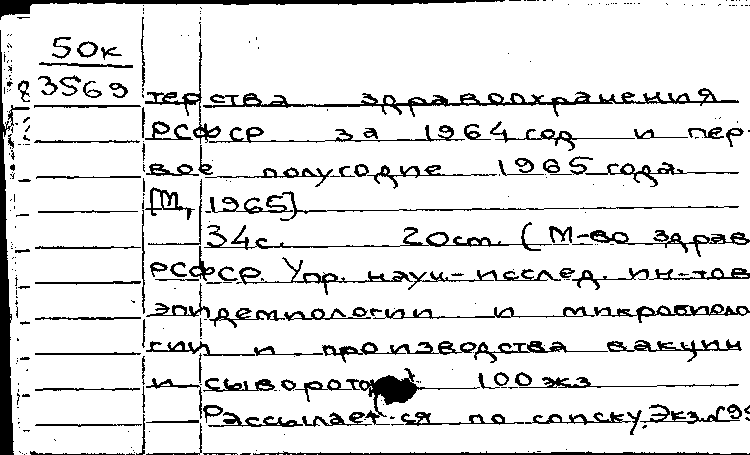 50к
3569
терства здравоохранения
РСФСР за 1964 год и пер-
вое полугодие 1965 года.
[М., 1965].
34с. 20см. (М-во здрав.
РСФСР. Упр. науч-исслед. ин-тов
эпидемиологии и микробиоло-
гии и производства вакцин
и сывороток) 100 экз
Рассылает-ся по списку. Экз.